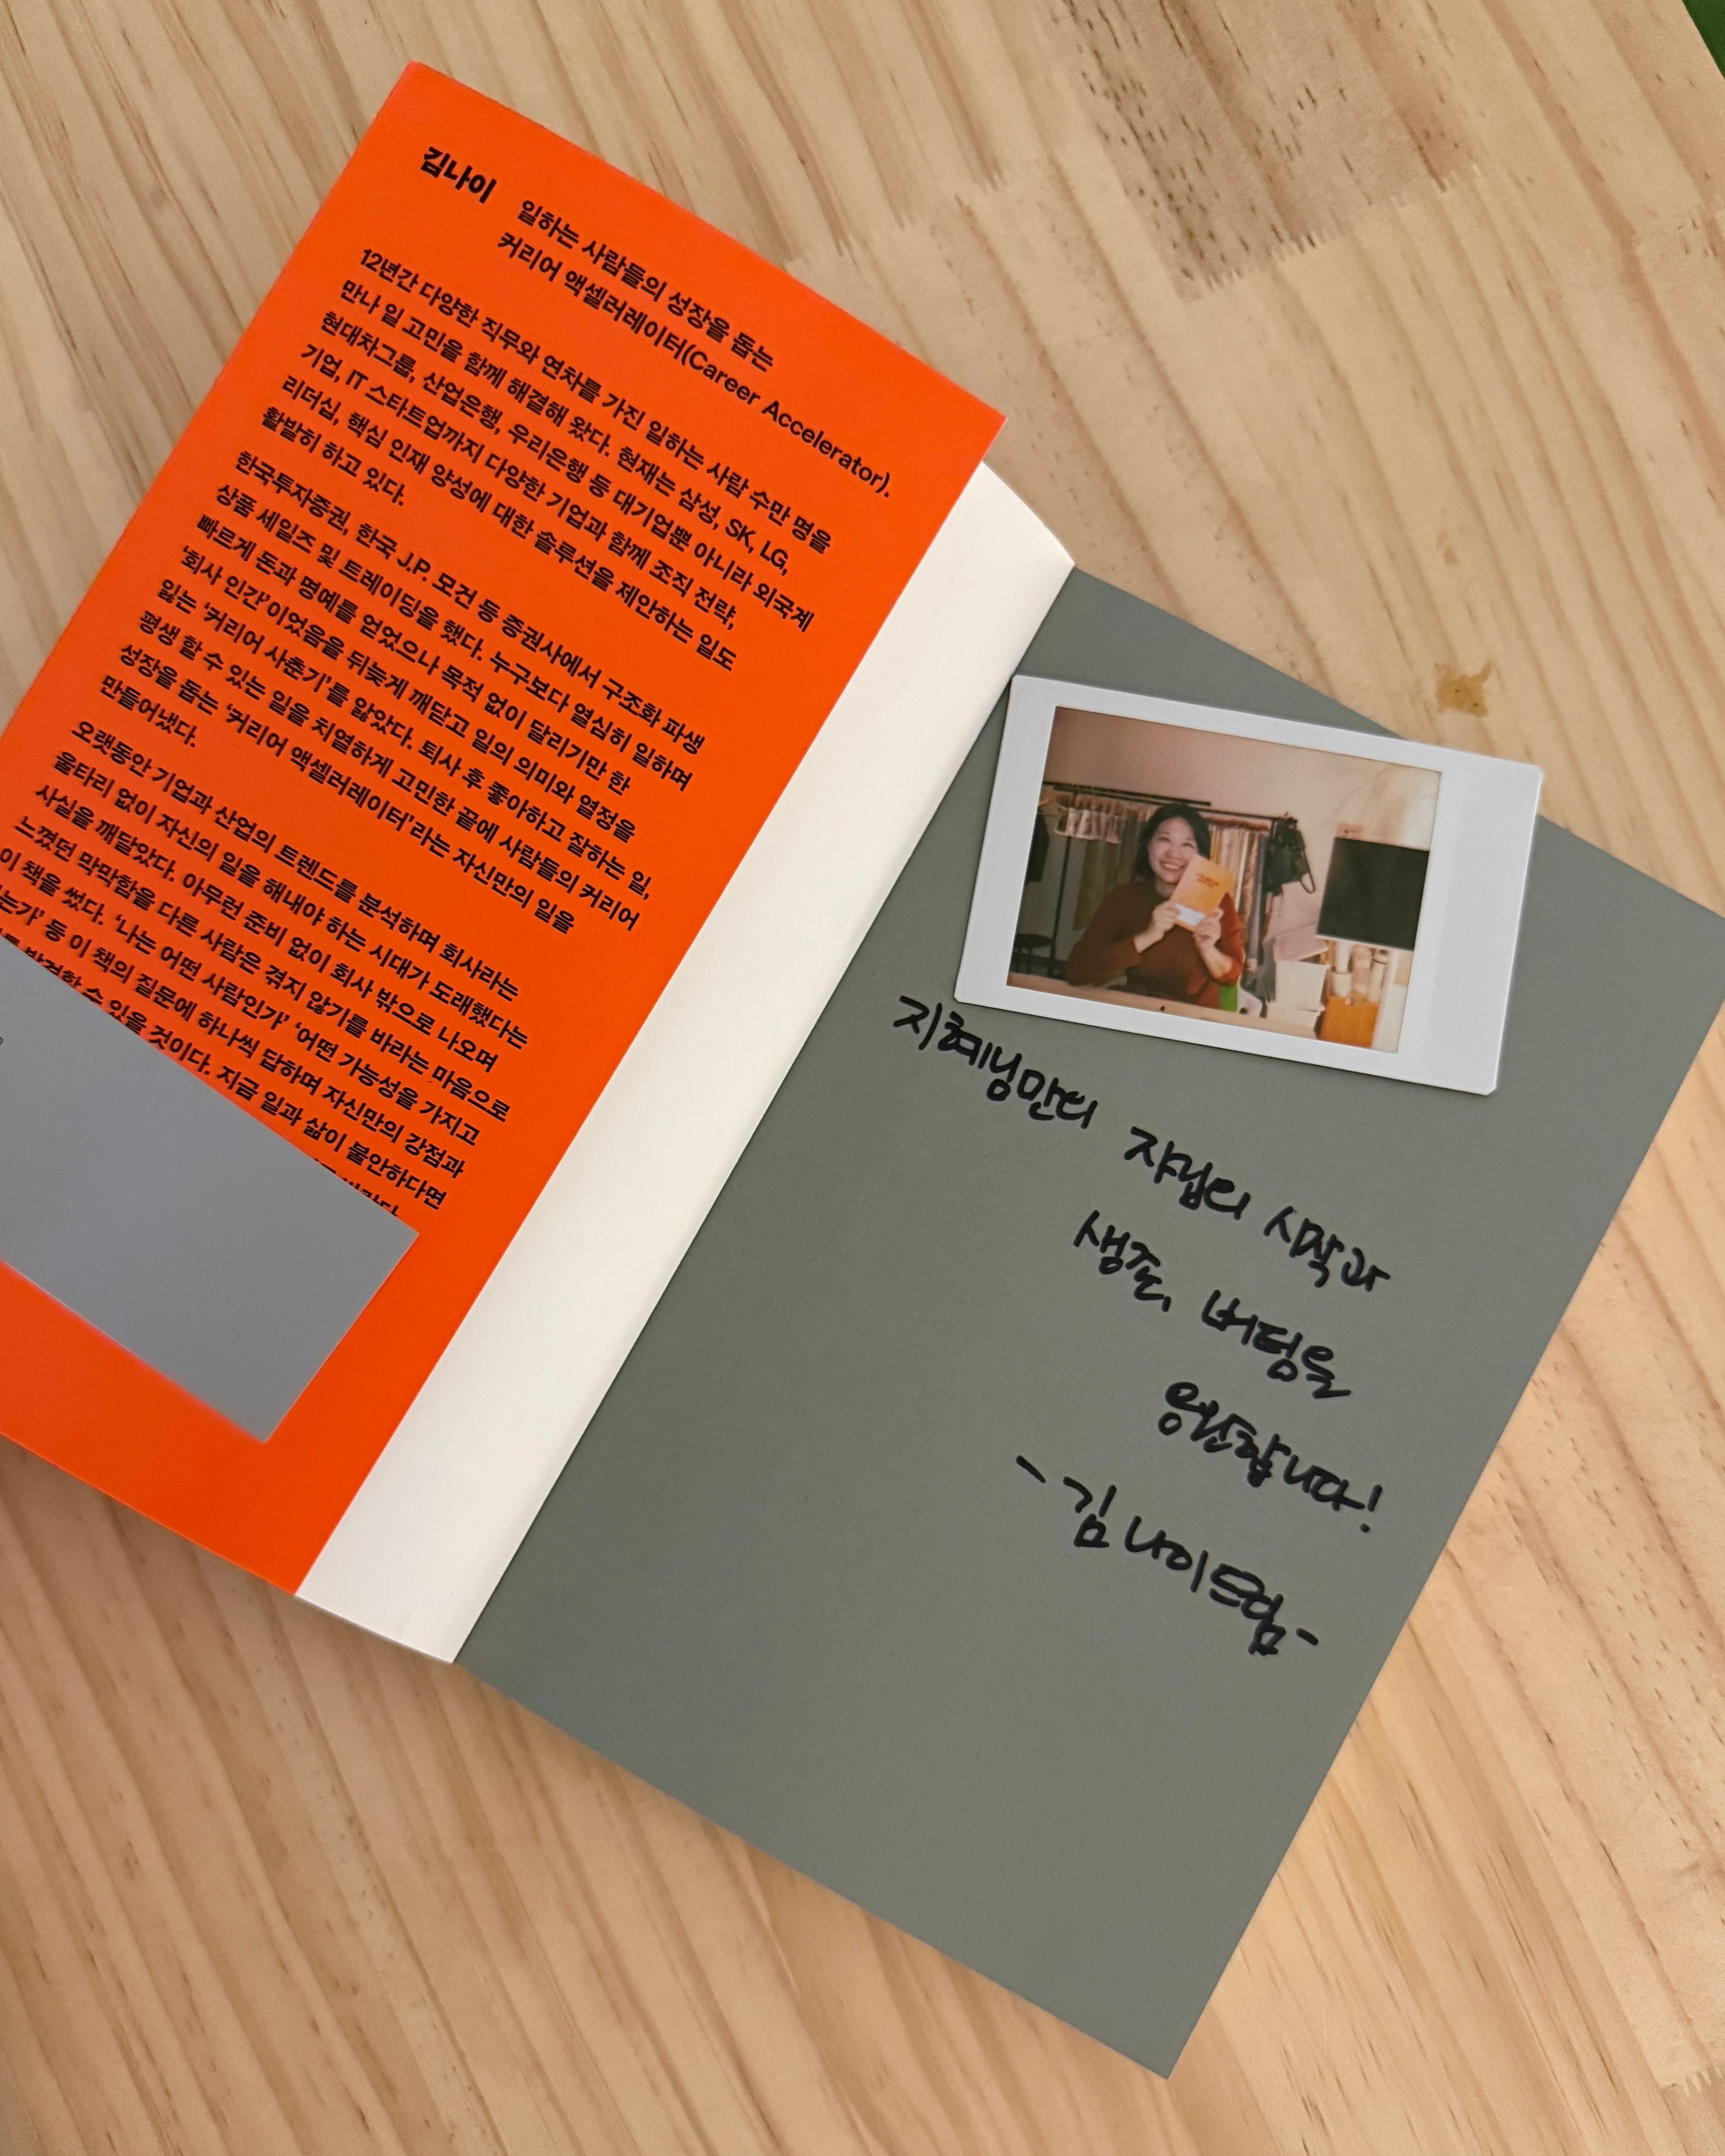 김나이
일하는 사람들의 성장을 돕는
커리어 액셀러레이터(Career Accelerator).
12년간 다양한 직무와 연차를 가진 일하는 사람 수만 명을
만나 일 고민을 함께 해결해 왔다. 현재는 삼성, SK, LG,
현대차그룹, 산업은행, 우리은행 등 대기업뿐 아니라 외국계
기업, IT 스타트업까지 다양한 기업과 함께 조직 전략,
리더십, 핵심 인재 양성에 대한 솔루션을 제안하는 일도
활발히 하고 있다.
한국투자증권, 한국 J.P. 모건 등 증권사에서 구조화 파생
상품 세일즈 및 트레이딩을 했다. 누구보다 열심히 일하며
빠르게 돈과 명예를 얻었으나 목적 없이 달리기만 한
‘회사 인간’이었음을 뒤늦게 깨닫고 일의 의미와 열정을
잃는 ‘커리어 사춘기’를 앓았다. 퇴사 후 좋아하고 잘하는 일,
평생 할 수 있는 일을 치열하게 고민한 끝에 사람들의 커리어
성장을 돕는 ‘커리어 액셀러레이터’라는 자신만의 일을
만들어냈다.
오랫동안 기업과 산업의 트렌드를 분석하며 회사라는
울타리 없이 자신의 일을 해내야 하는 시대가 도래했다는
사실을 깨달았다. 아무런 준비 없이 회사 밖으로 나오며
느꼈던 막막함을 다른 사람은 겪지 않기를 바라는 마음으로
이 책을 썼다. ‘나는 어떤 사람인가’ ‘어떤 가능성을 가지고
는가’ 등 이 책의 질문에 하나씩 답하며 자신만의 강점과
발견할 수 있을 것이다. 지금 일과 삶이 불안하다면
지혜님만의 자립의 시작과
생존, 버텀을
응원합니다!
- 김나이드림 -